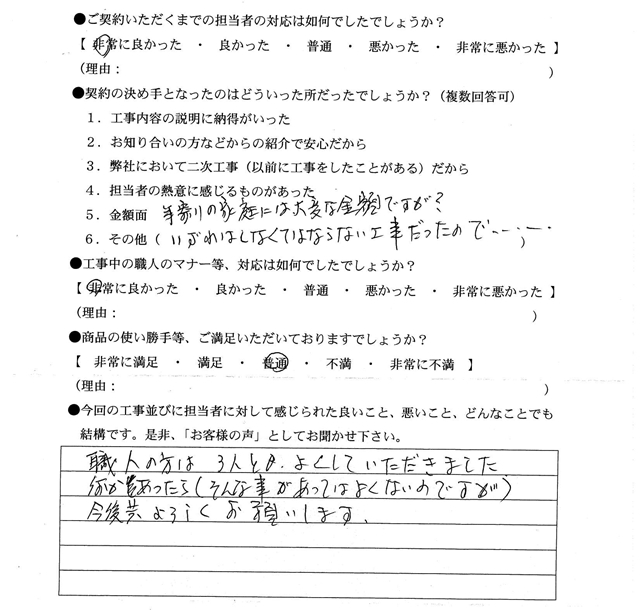 ●ご契約いただくまでの担当者の対応は如何でしたでしょうか？
【 非常に良かった ・ 良かった ・ 普通 ・ 悪かった ・ 非常に悪かった 】
（理由： ）
●契約の決め手となったのはどういった所だったでしょうか？（複数回答可）
１．工事内容の説明に納得がいった
２．お知り合いの方などからの紹介で安心だから
３．弊社において二次工事（以前に工事をしたことがある）だから
４．担当者の熱意に感じるものがあった
５．金額面 年寄りの家庭には大変な金額ですが？
６．その他（ いずれはしなくてはならない工事だったので・・・；・・
●工事中の職人のマナー等、対応は如何でしたでしょうか？
【 非常に良かった ・ 良かった ・ 普通 ・ 悪かった ・ 非常に悪かった 】
（理由： ）
●商品の使い勝手等、ご満足いただいておりますでしょうか？
【 非常に満足 ・ 満足 ・ 普通 ・ 不満 ・ 非常に不満 】
（理由： ）
●今回の工事並びに担当者に対して感じられた良いこと、悪いこと、どんなことでも
結構です。是非、「お客様の声」としてお聞かせ下さい。
職人の方は３人とも、よくしていただきました
何かあったら（そんな事があってはよくないのですが）
今後共よろしくお願いします、